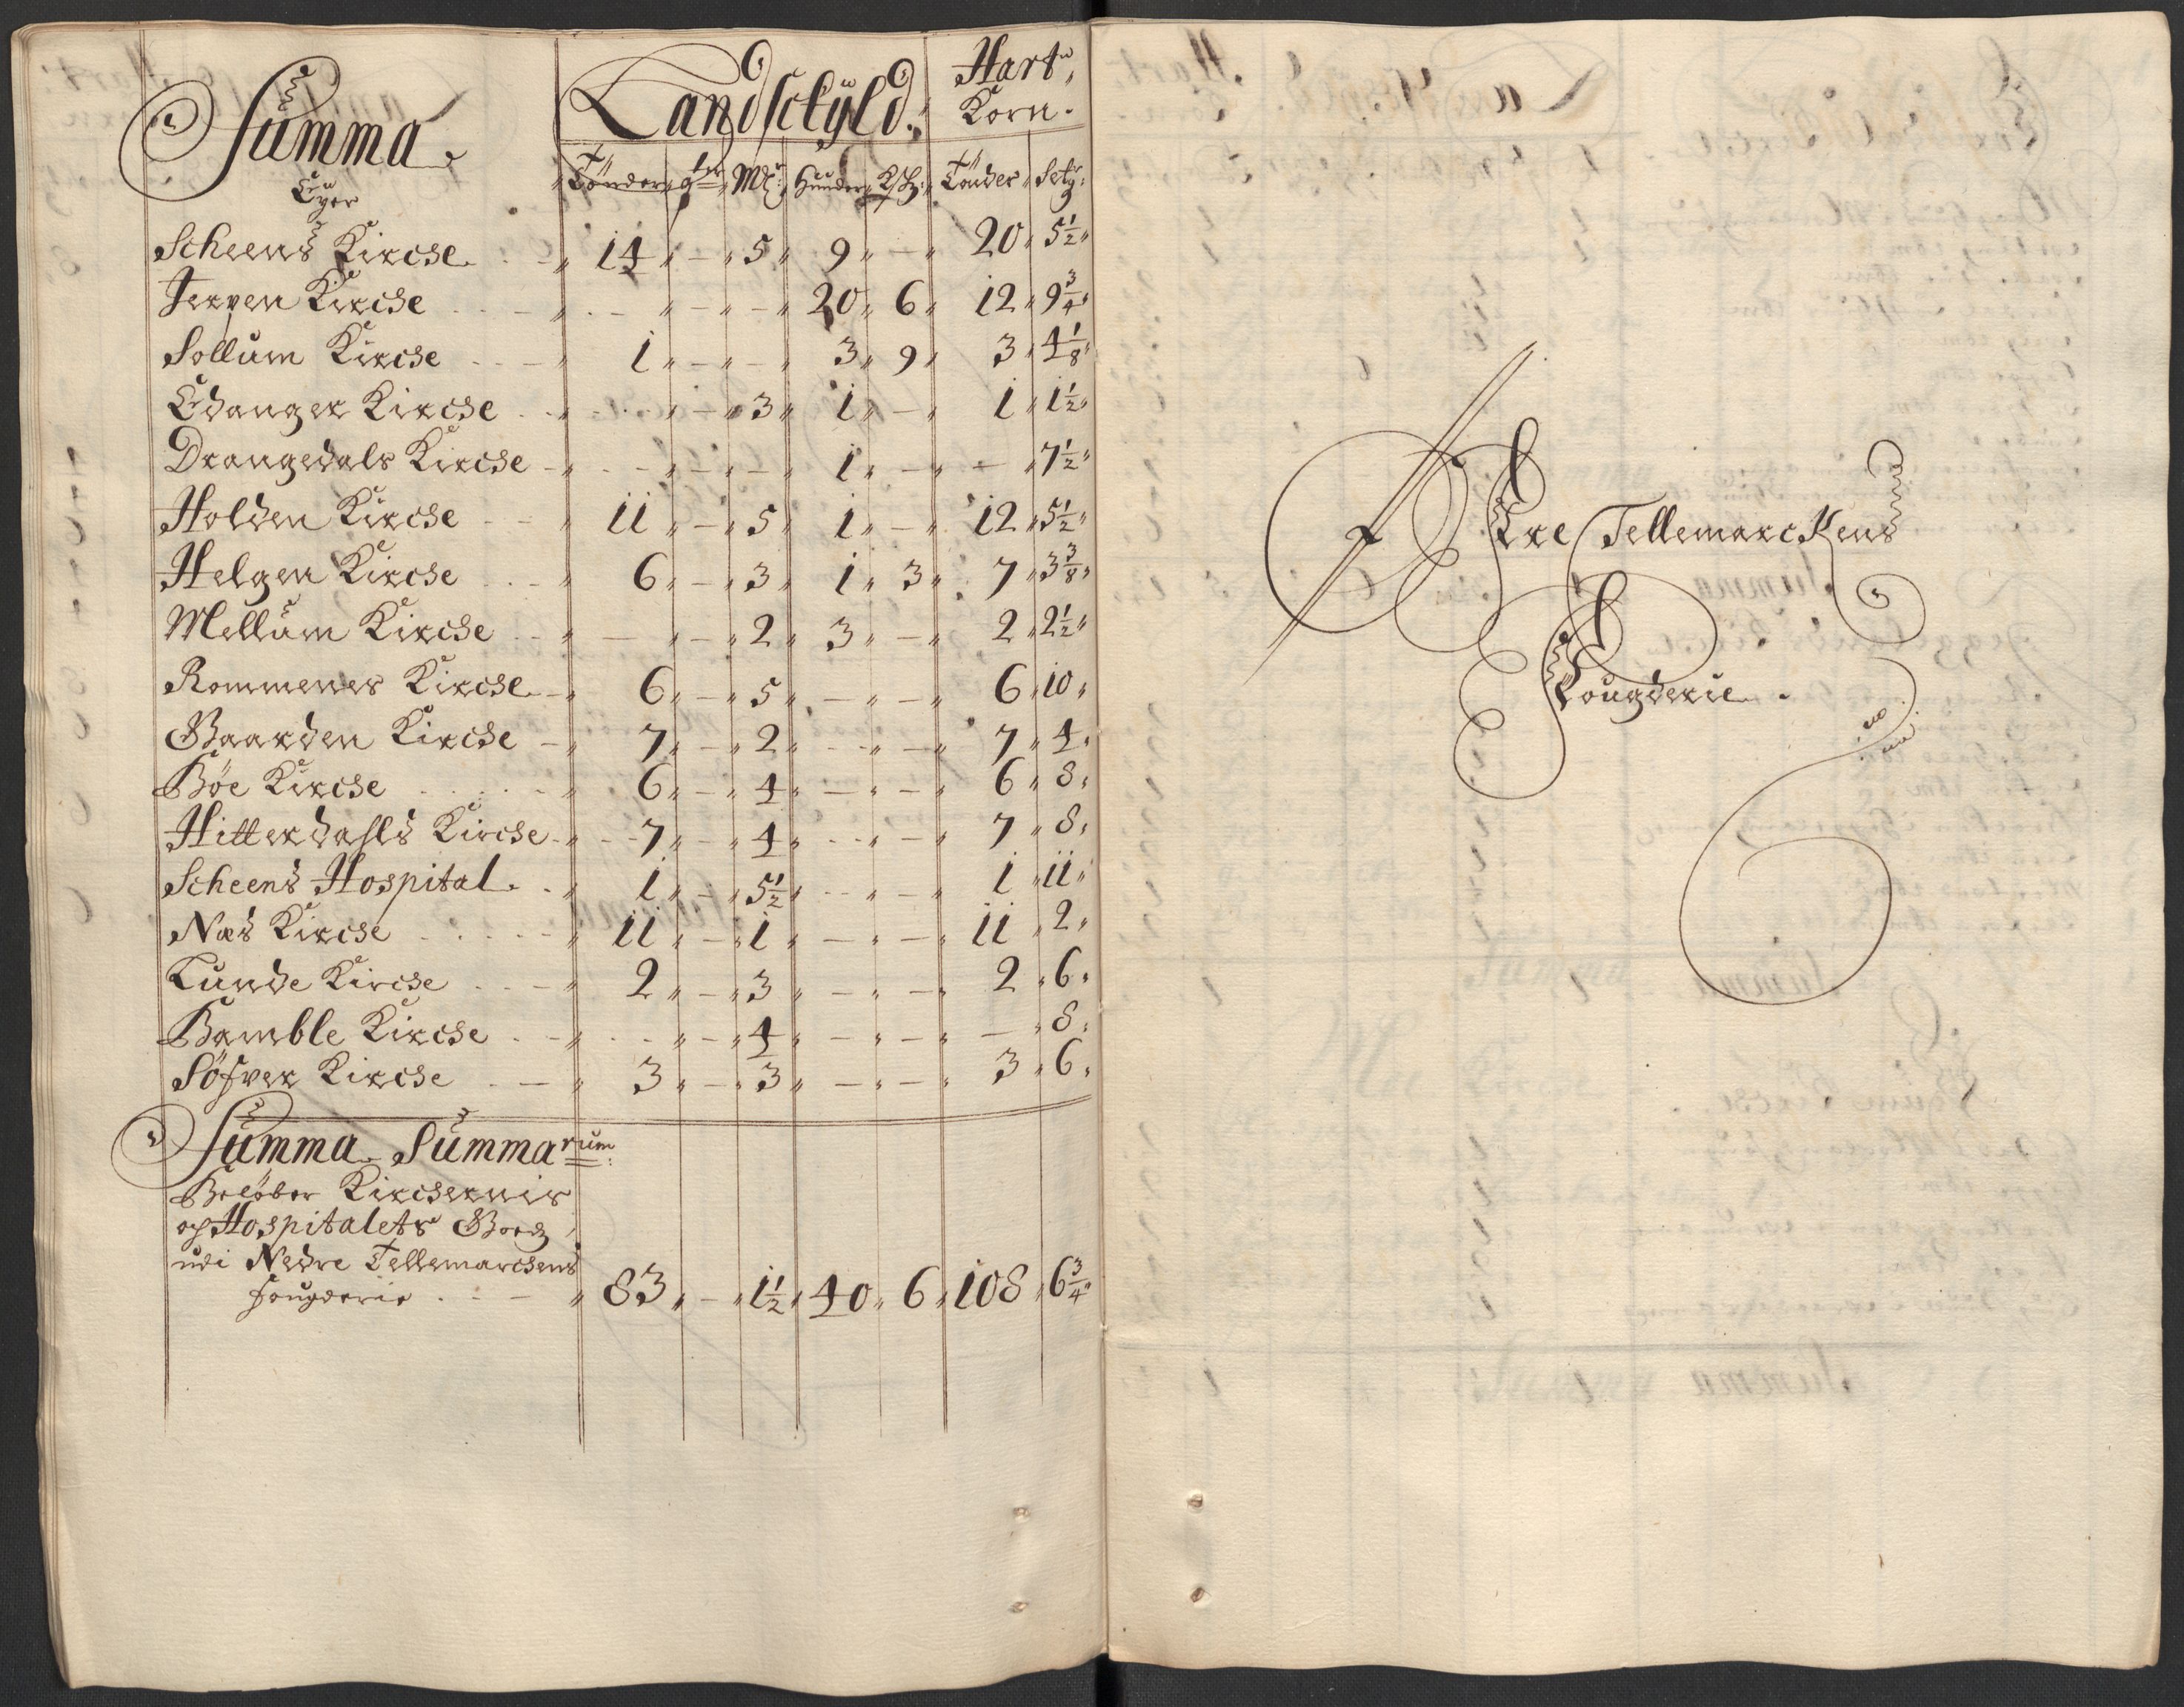 Summa
Landschÿld.
Hart
Korn.
Eyer
Tönder Mк: Hunder Tönder Setg:
Scheens Kircke . . 14 „ — „ 5 „ 9 „ — „ 20 „ 5½ „
Jerpen Kircke . . . — „ — „ — „ 20 „ 6 „ 12 „ 9¾ „
Sollum Kircke . . — „ 1 „ — „ — „ 3 „ 9 „ 3 „ 4⅛ „
Edanger Kircke . . „ — „ 3 „ 1 „ — „ 1 „ 1½ „
Drangedals Kircke — „ — „ — „ 1 „ — „ — „ 7½ „
Holden Kircke — „ 11 „ — „ 5 „ 1 „ — „ 12 „ 5½ „
Helgen Kircke . . — „ 6 „ — „ 3 „ 1 „ 3 „ 7 „ 3⅜ „
Mellum Kircke . — „ — „ — „ 2 „ 3 „ — „ 2 „ 2½ „
Rommenes Kircke — „ 6 „ — „ 5 „ — „ — „ 6 „ 10 „
Gaarden Kircke — „ 7 „ — „ 2 „ — „ — „ 7 „ 4 „
Bøe Kircke . . . — „ 6 „ — „ 4 „ — „ — „ 6 „ 8 „
Hitterdahls Kircke — „ 7 „ — „ 4 „ — „ — „ 7 „ 8 „
Scheens Hospital . . „ 1 „ — „ 5½ „ — „ — „ 1 „ 11 „
Næs Kircke . . . — „ 11 „ — „ 1 „ — „ — „ 11 „ 2 „
Lunde Kircke . . — „ 2 „ — „ 3 „ — „ — „ 2 „ 6 „
Bamble Kircke . — „ . . „ — „ 4 „ — „ — „ — „ 8 „
Söfver Kircke . — „ 3 „ — „ 3 „ — „ — „ 3 „ 6 „
Summa Summarum
Beløber Kirckernis
og Hospitalets Goedz
udi Nedre Tellemarckens
fougderie . — „ 83 „ — „ 1½ „ 40 „ 6 „ 108 „ 6¾ „
Tellemarckens
Fougderie .